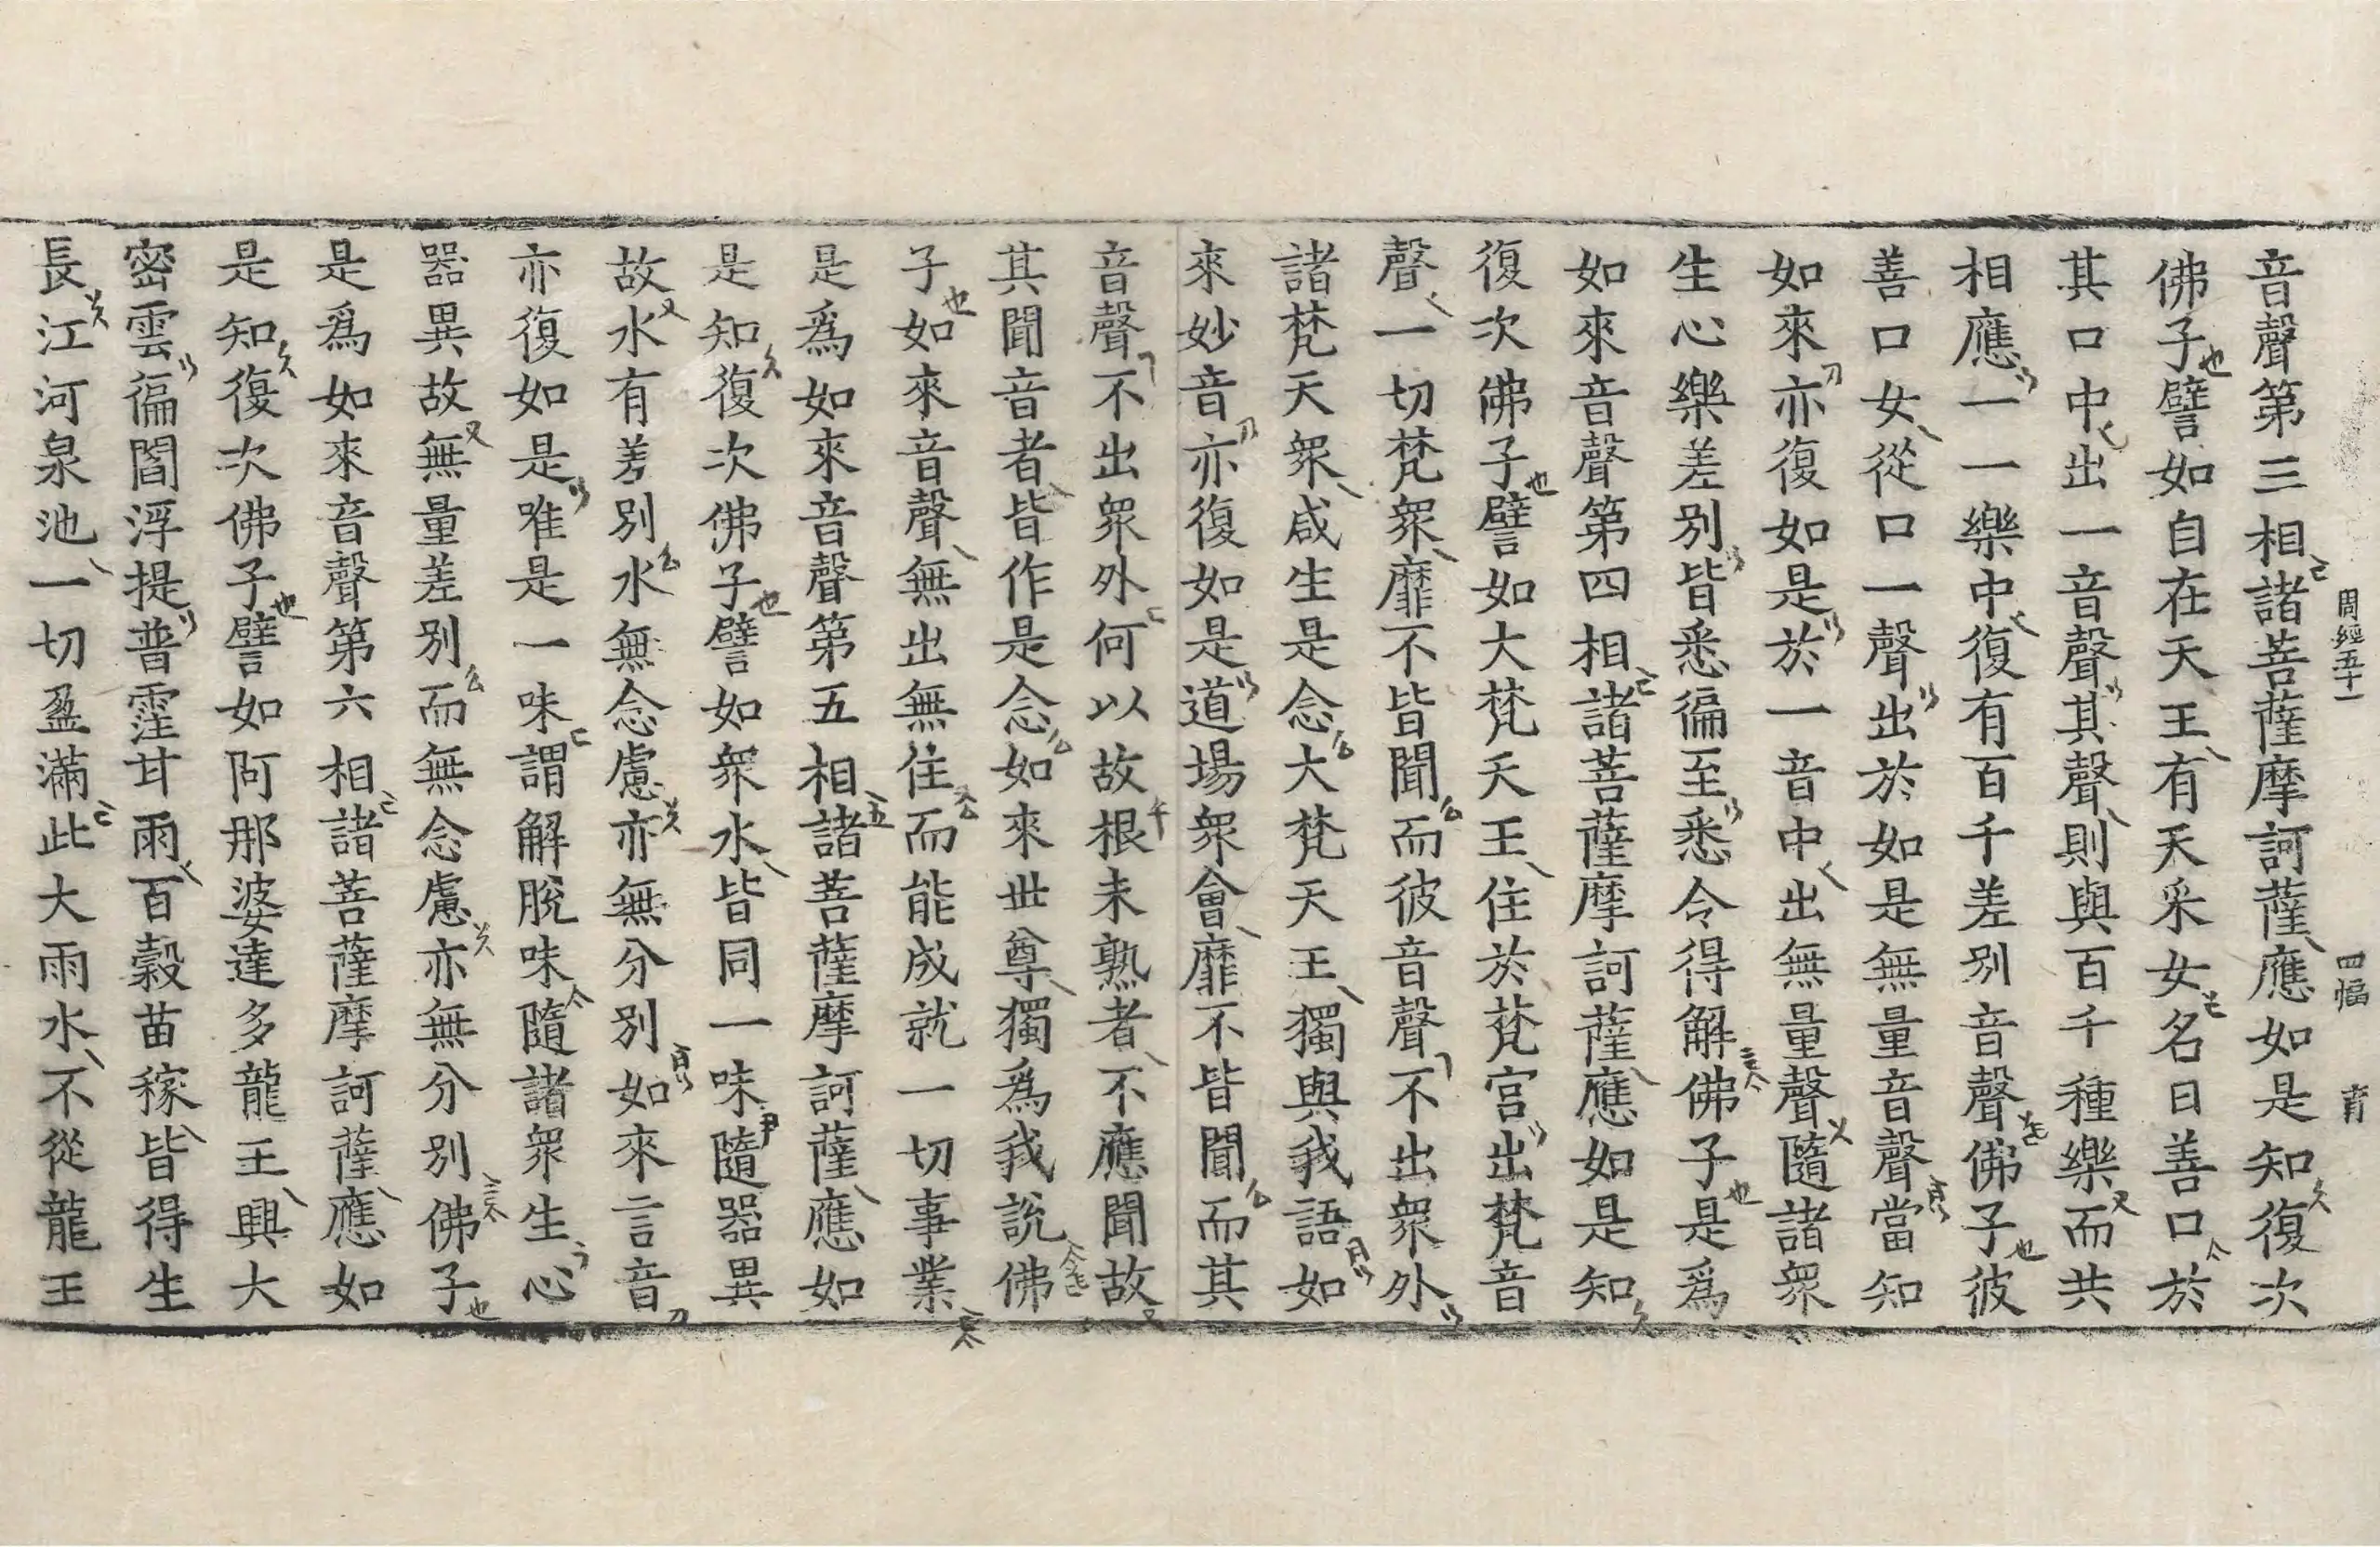 周經五十一 四幅 育
音聲第三相諸菩薩摩訶薩應如是知復次
佛子譬如自在天王有天采女名曰善口於
其口中出一音聲其聲則與百千種樂而共
相應一一樂中復有百千差別音聲佛子彼
善口女從口一聲出於如是無量音聲當知
如來亦復如是於一音中出無量聲隨諸衆
生心樂差別皆悉徧至悉令得解佛子是爲
如來音聲第四相諸菩薩摩訶薩應如是知
復次佛子譬如大梵天王住於梵宮出梵音
聲一切梵衆靡不皆聞而彼音聲不出衆外
諸梵天衆咸生是念大梵天王獨與我語如
來妙音亦復如是道場衆會靡不皆聞而其
音聲不出衆外何以故根未熟者不應聞故
其聞音者皆作是念如來世尊獨爲我說佛
子如來音聲無出無住而能成就一切事業
是爲如來音聲第五相諸菩薩摩訶薩應如
是知復次佛子譬如衆水皆同一味隨器異
故水有差別水無念慮亦無分別如來言音
亦復如是唯是一味謂解脫味隨諸衆生心
器異故無量差別而無念慮亦無分別佛子
是爲如來音聲第六相諸菩薩摩訶薩應如
是知復次佛子譬如阿那婆達多龍王興大
密雲徧閻浮提普霔甘雨百穀苗稼皆得生
長江河泉池一切盈滿此大雨水不從龍王